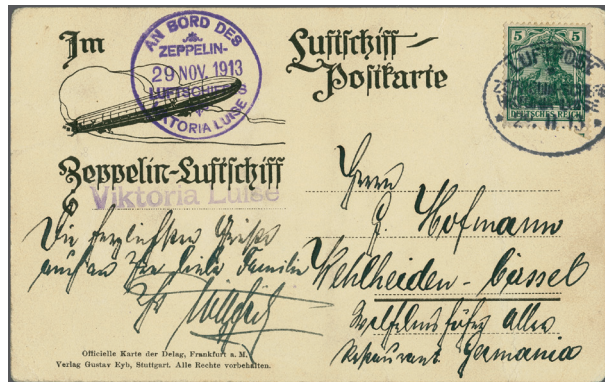 Im
Luftschiff-
Postkarte
AN BORD DES
ZEPPELIN-
29 NOV. 1913
LUFTSCHIFFES
VIKTORIA LUISE
5 5
DEUTSCHES REICH
LUFTPOST
VIKTORIA LUISE
Zeppelin-Luftschiff
Viktoria Luise
Die herzlichsten Grüße
auch an Ihre liebe Familie
Ihr
Herrn
Hofmann
Wehlheiden-Cassel
Wilhelmshöher Allee
Restaurant Germania
Officielle Karte der Delag, Frankfurt a. M.
Verlag Gustav Eyb, Stuttgart. Alle Rechte vorbehalten.